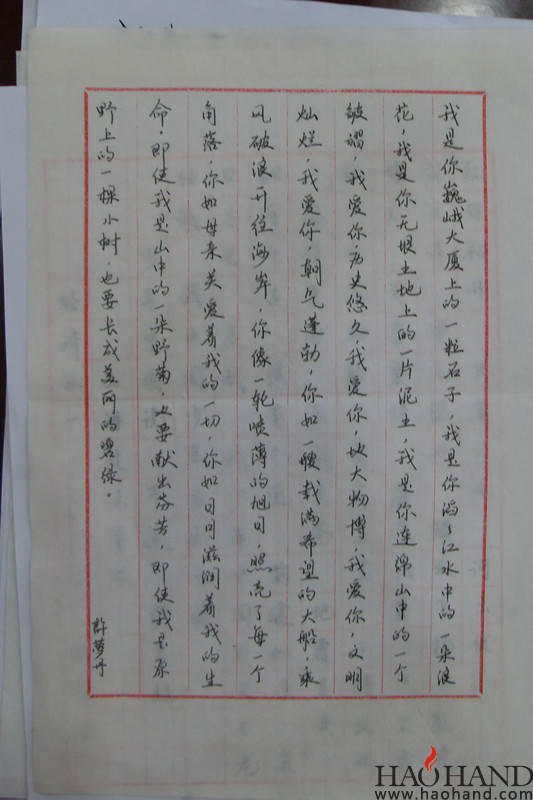 我是你巍峨大厦上的一粒石子，我是你滔滔江水中的一朵浪
花，我是你无垠土地上的一片泥土，我是你连绵山中的一个
皱褶，我爱你，历史悠久，我爱你，地大物博，我爱你，文明
灿烂，我爱你，朝气蓬勃，你如一艘载满希望的大船，乘
风破浪开往海岸，你像一轮喷薄的旭日，照亮了每一个
角落，你如母亲关爱着我的一切，你如日月滋润着我的生
命，即使我是山中的一朵野菊，也要献出芬芳，即使我是原
野上的一棵小树，也要长成美丽的碧绿。
许梦丹
HAOHAND
www.haohand.com